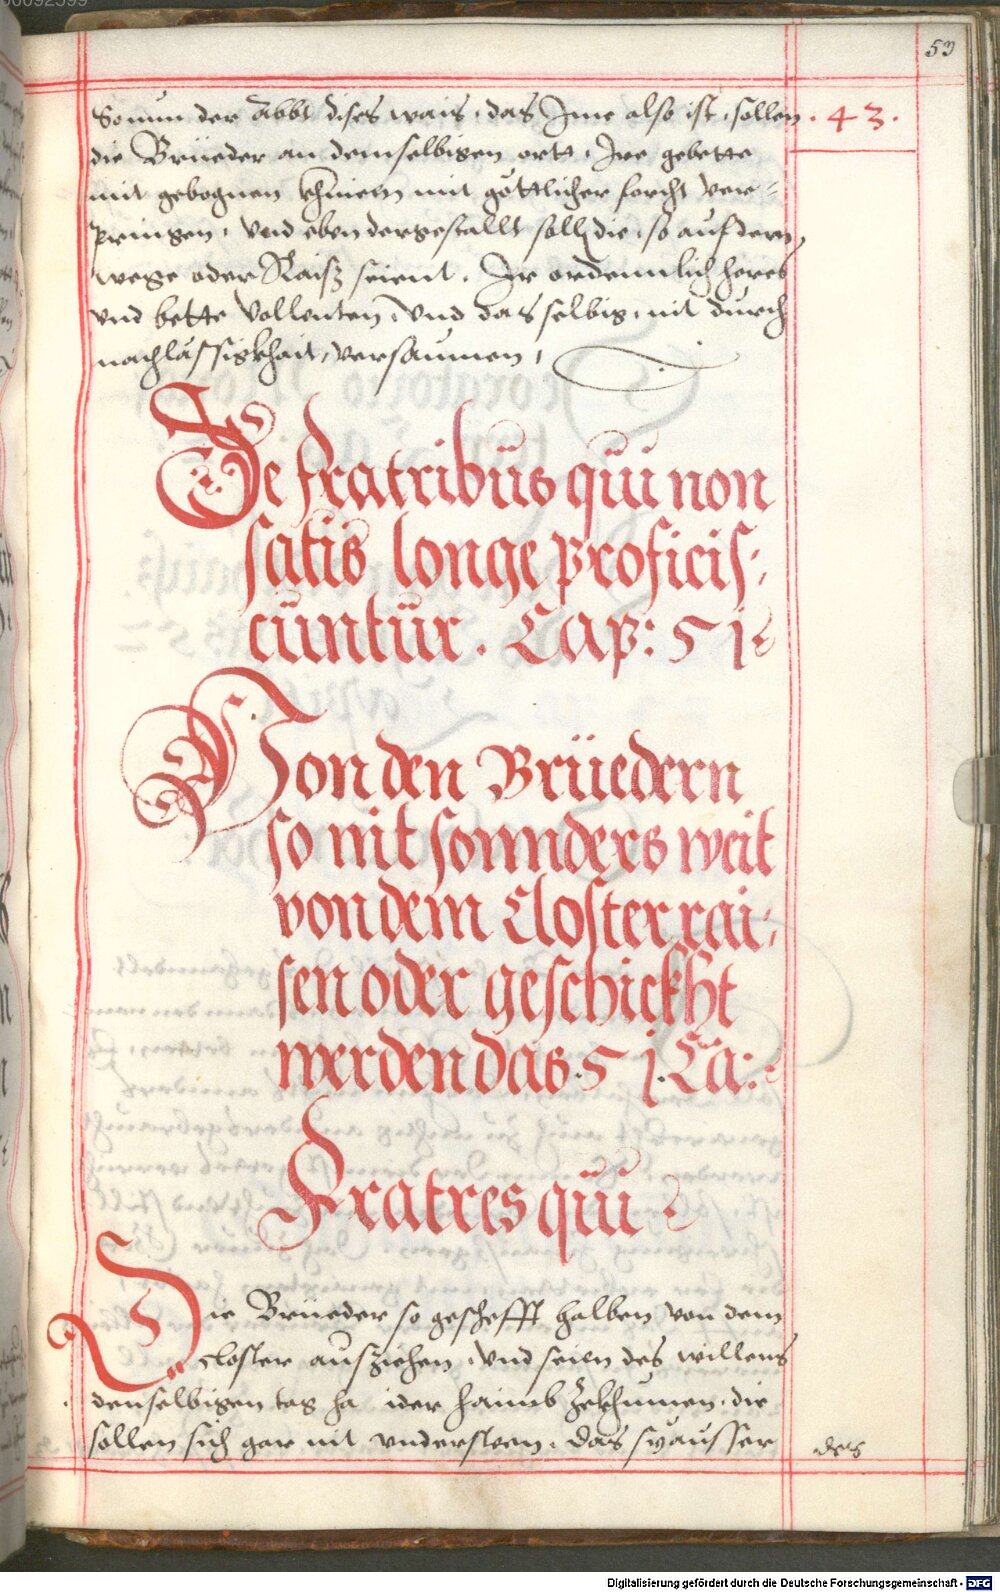 53
So nun der Abbt dises wais, das Ime also ist, sollen
.43.
die Brüeder an demselbigen ortt, Ire gebette
mit gebognen khniem mit göttlicher forcht ver-
pringen, vnd eben dergestallt soll die, so auf dem
wege oder Raiß seient, Ir ordennlich hores
vnd bette vollenten, vnd das selbig, nit durch
nachlässigkhait, versaumen,
De fratribus qui non
satis longe proficis-
cuntur. Cap: 51
Von den Brüedern
so nit sonnders weit
von dem Closter rai-
sen oder geschickht
werden das 51. Ca:
Fratres qui
Die Brüeder so geschefft halben von dem
closter ausziehen, vnd seien des willens
denselbigen tag ha ider haimb zekhumen, die
sollen sich gar nit vndersteen, das sy ausser
des
Digitalisierung gefördert durch die Deutsche Forschungsgemeinschaft - DFG